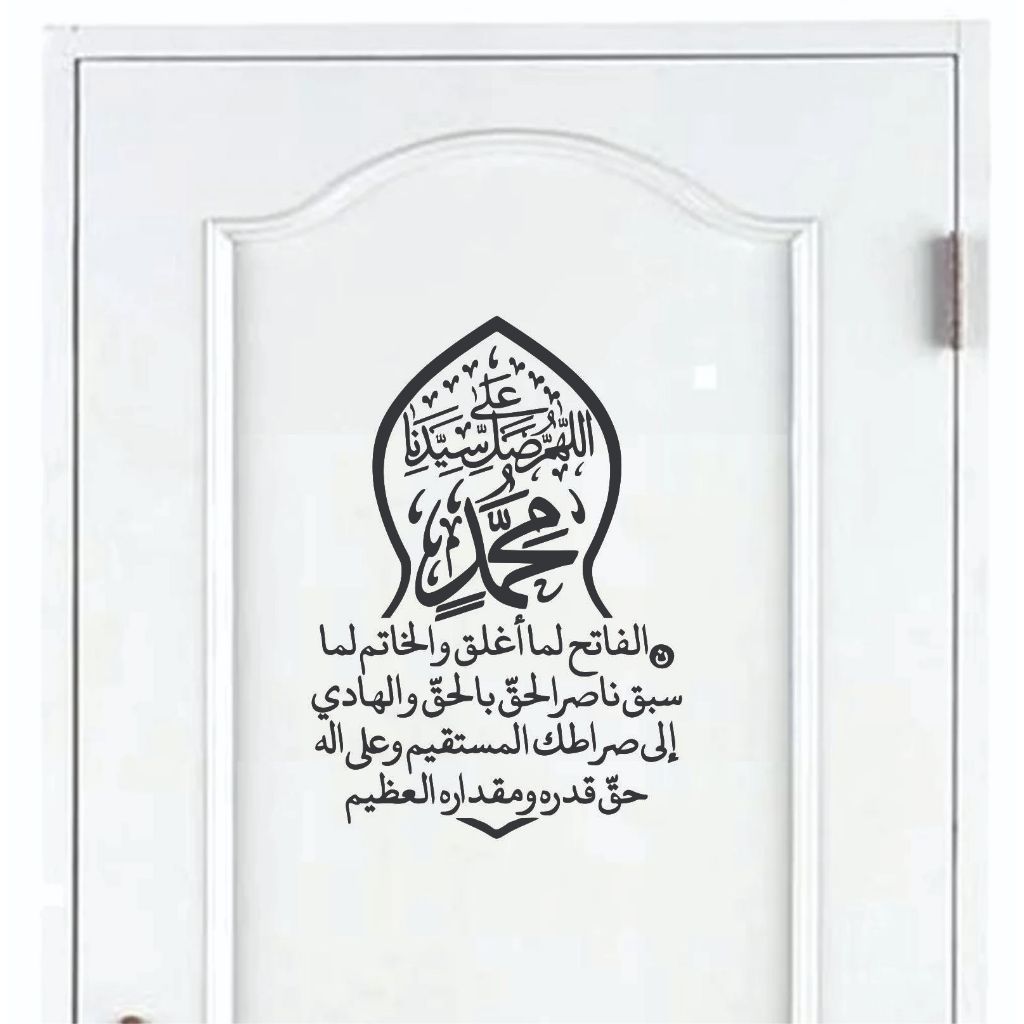 اللَّهُمَّ صَلِّ عَلَى سَيِّدِنَا
مُحَمَّدٍ
الفاتح لما أغلق والخاتم لما
سبق ناصر الحقّ بالحقّ والهادي
إلى صراطك المستقيم وعلى اله
حقّ قدره ومقداره العظيم